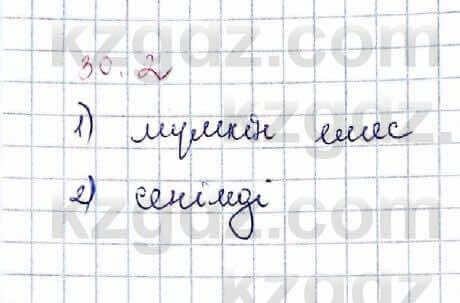 kzgdz.com
30.2
1) мүмкін емес
kzgdz.com
2) сенімді
kzgdz.com